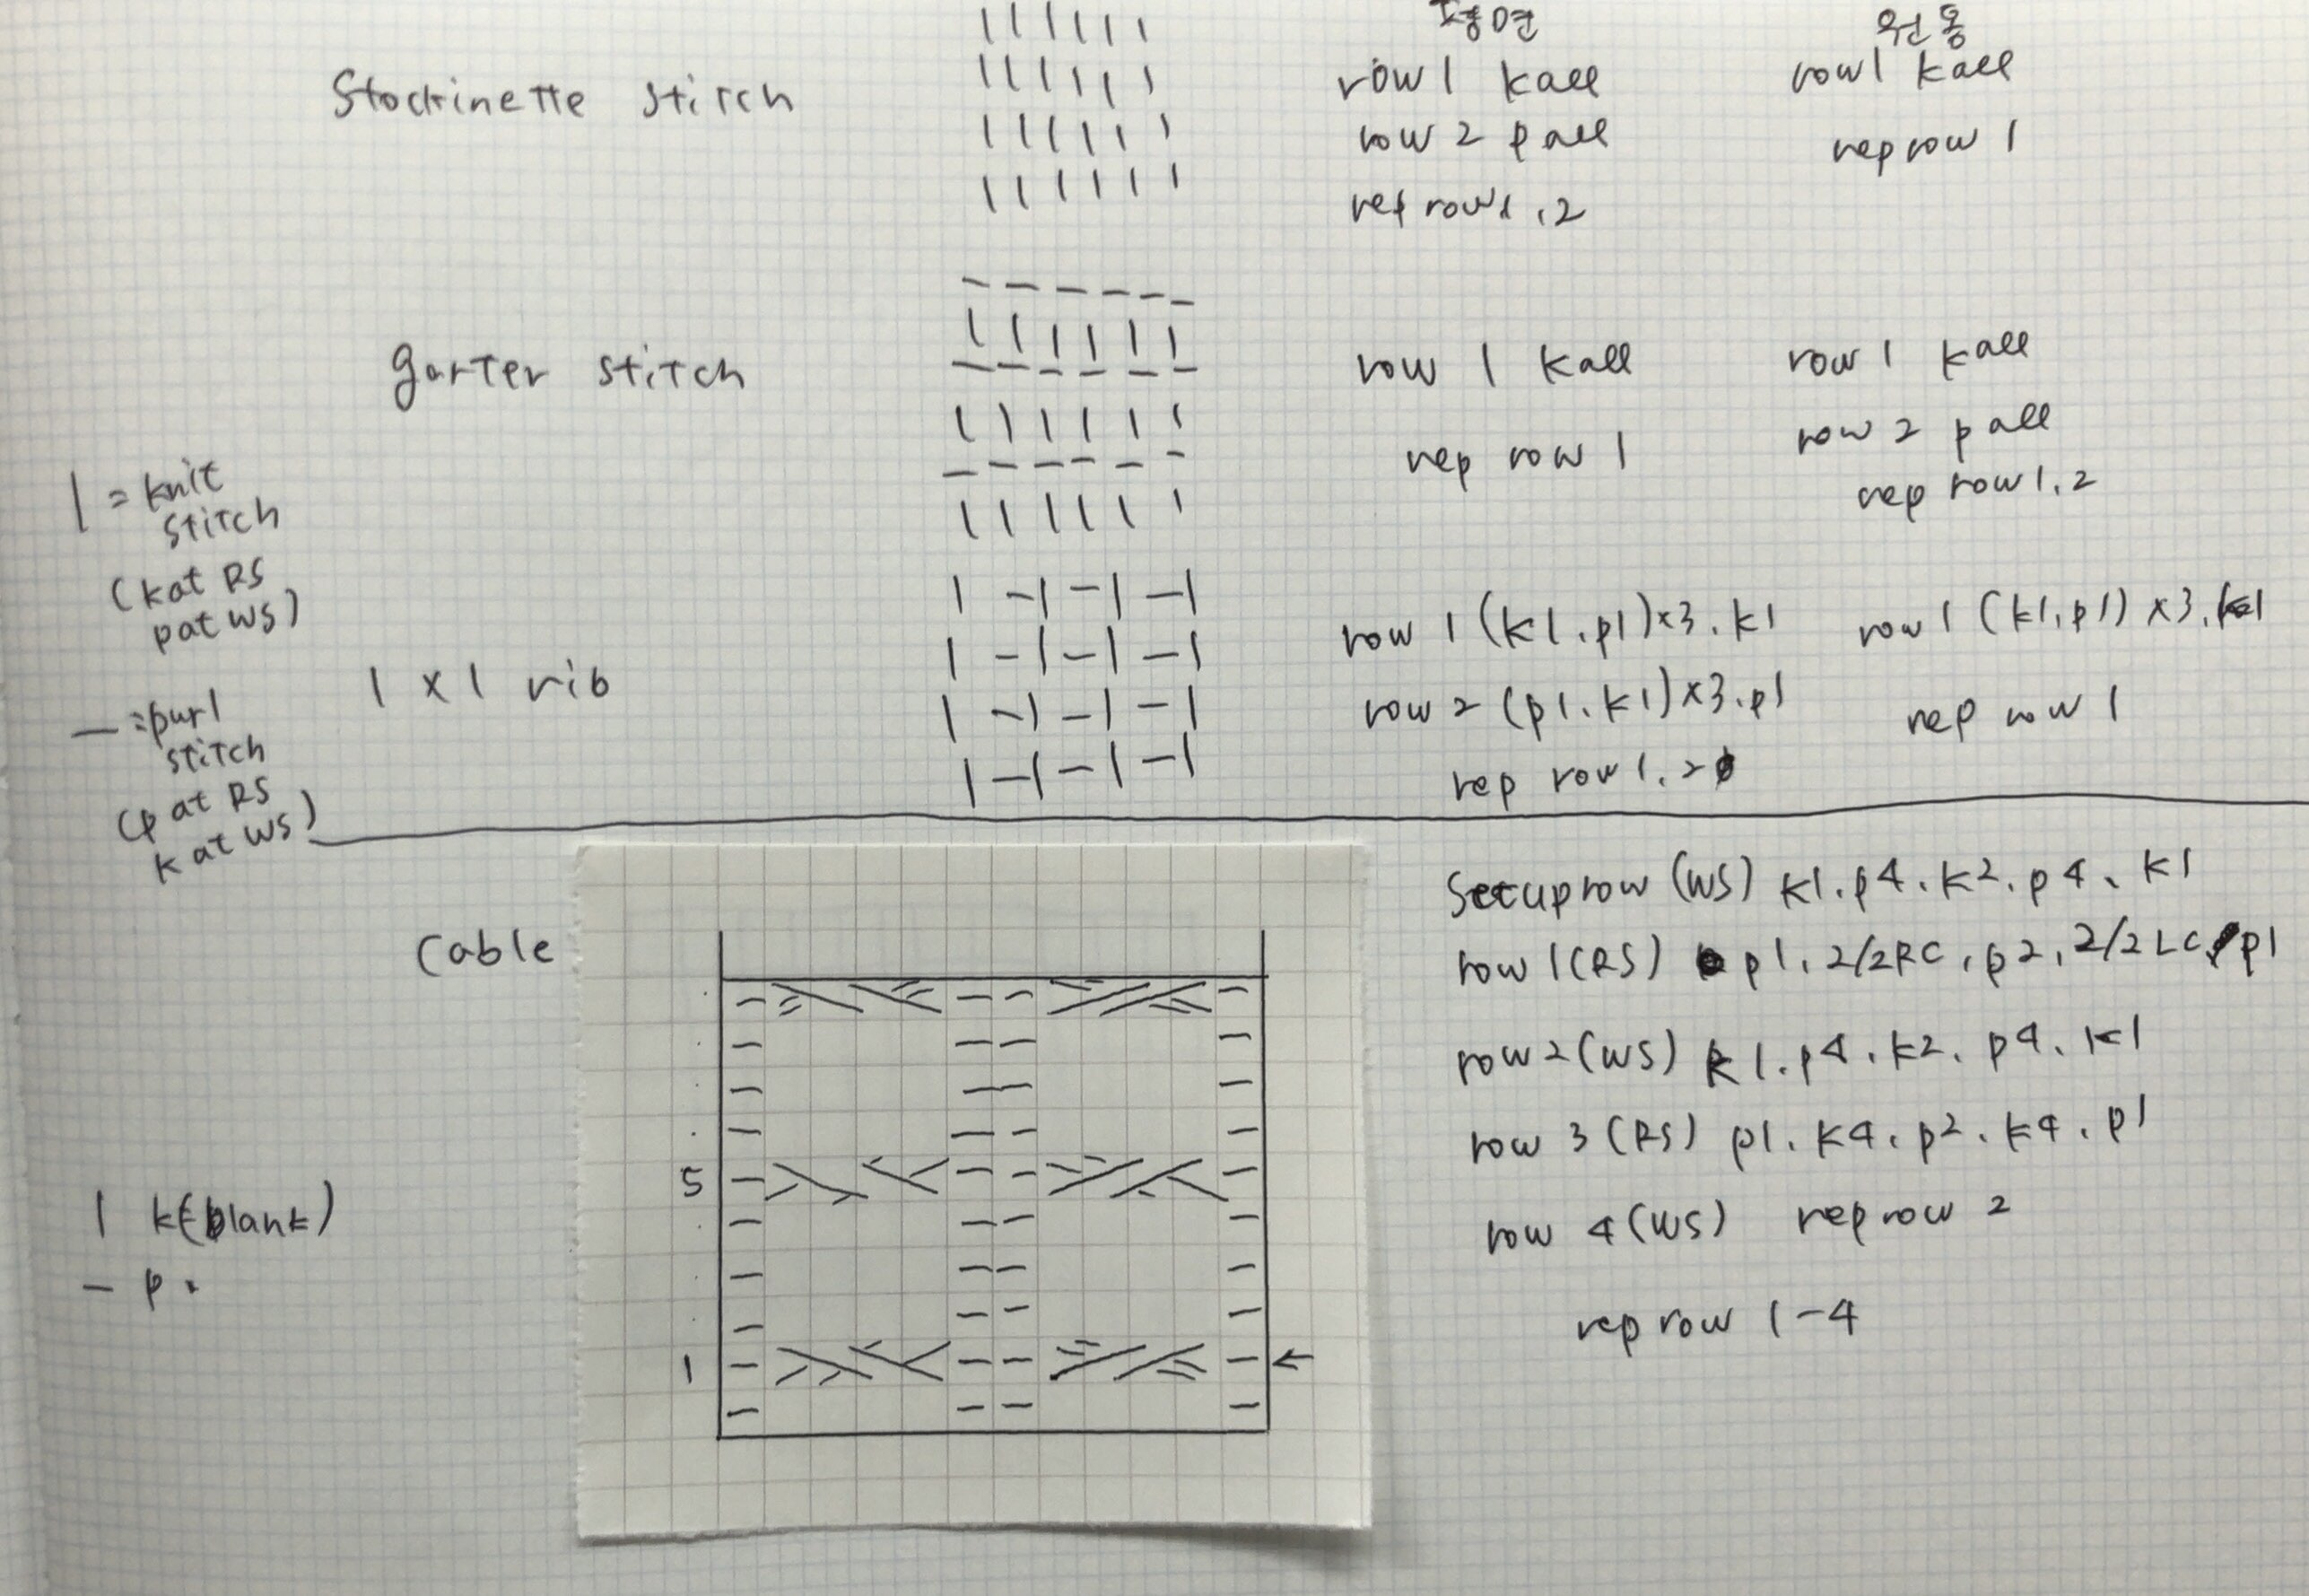 평면 원통
Stockinette stitch
row 1 k all
row 2 p all
rep row 1, 2
row 1 k all
rep row 1
garter stitch
row 1 k all
rep row 1
row 1 k all
row 2 p all
rep row 1, 2
| = knit
stitch
(k at RS
p at WS)
— = purl
stitch
(p at RS
k at WS)
1 x 1 rib
row 1 (k1, p1) x3, k1
row 2 (p1, k1) x3, p1
rep row 1, 2
row 1 (k1, p1) x3, k1
rep row 1
Cable
5
1
←
Setup row (WS) k1, p4, k2, p4, k1
row 1 (RS) p1, 2/2RC, p2, 2/2LC, p1
row 2 (WS) k1, p4, k2, p4, k1
row 3 (RS) p1, k4, p2, k4, p1
row 4 (WS) rep row 2
rep row 1-4
| k (blank)
— p .